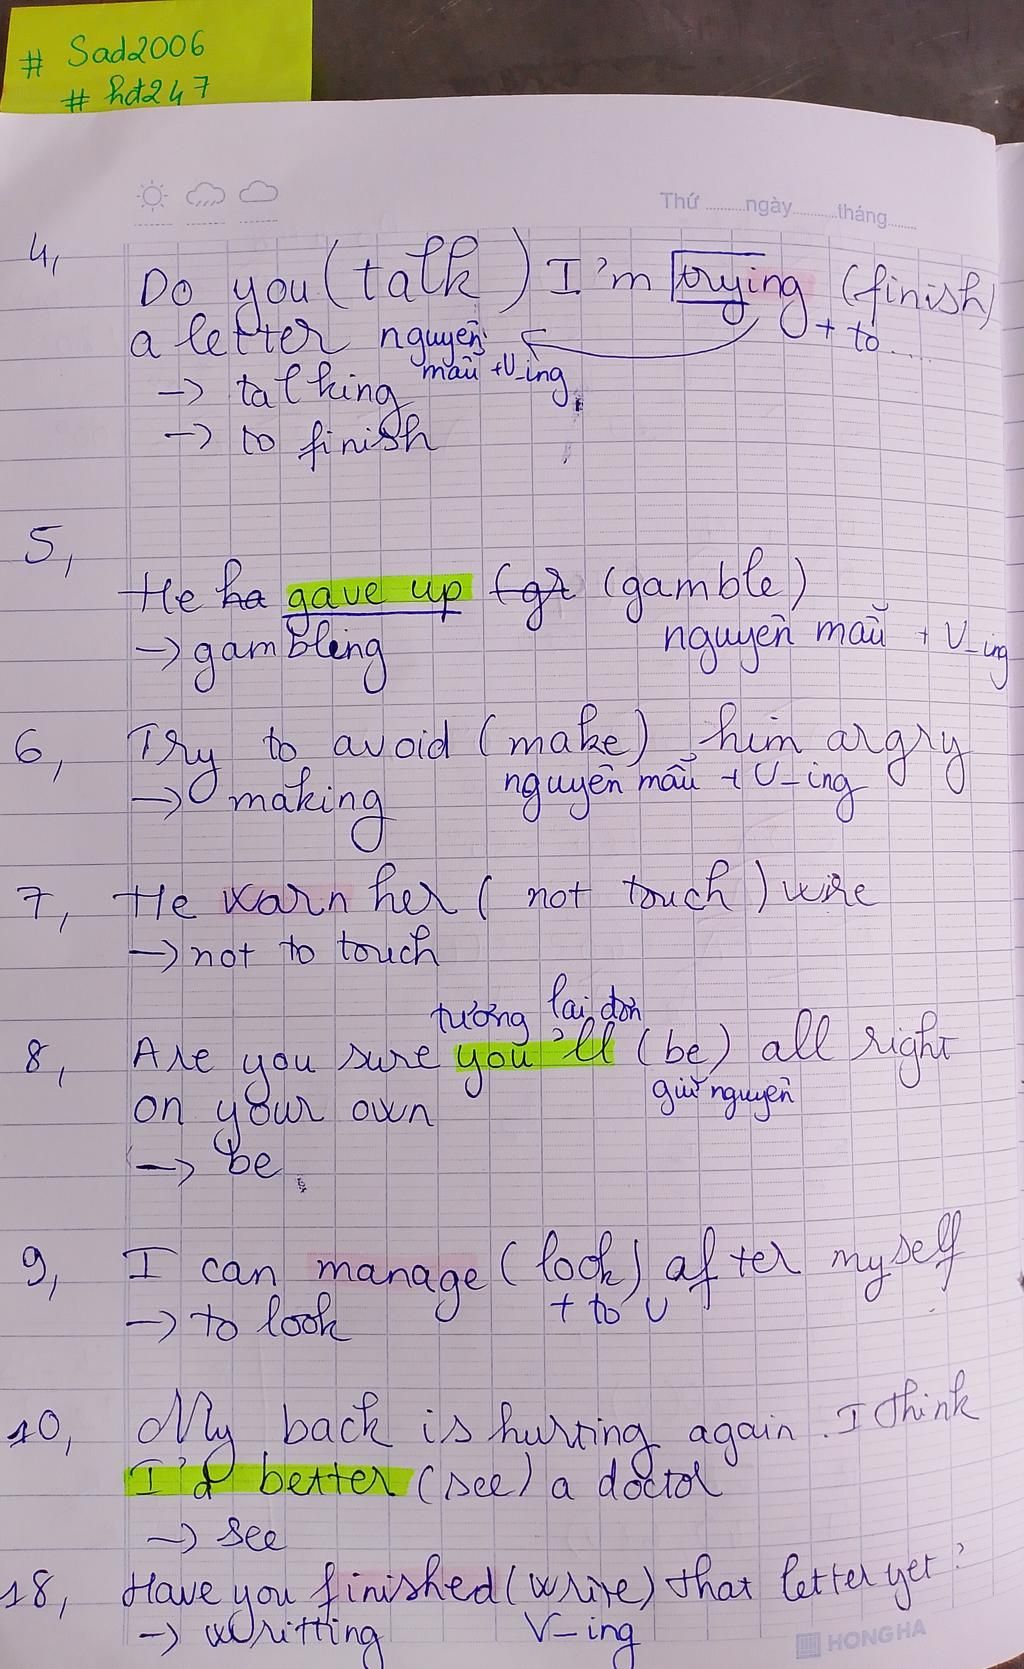 # Sad2006
# hđ247
Thứ ........ngày........tháng........
4,
Do you (talk) I'm trying (finish)
a letter nguyên + to ....
mẫu + V_ing
→ talking
→ to finish
5,
He ha gave up (ga (gamble)
→ gambling nguyên mẫu + V_ing
6, Try to avoid (make) him argry
→ making nguyên mẫu + V_ing
7, He warn her ( not touch ) wire
→ not to touch
tương lai đơn
8, Are you sure you'll (be) all right
giữ nguyên
on your own
→ be
9, I can manage (look) after myself
→ to look + to V
10, My back is hurting again. I think
I'd better (see) a doctor
→ see
18, Have you finished (write) that letter yet?
→ writting V_ing
HONG HA